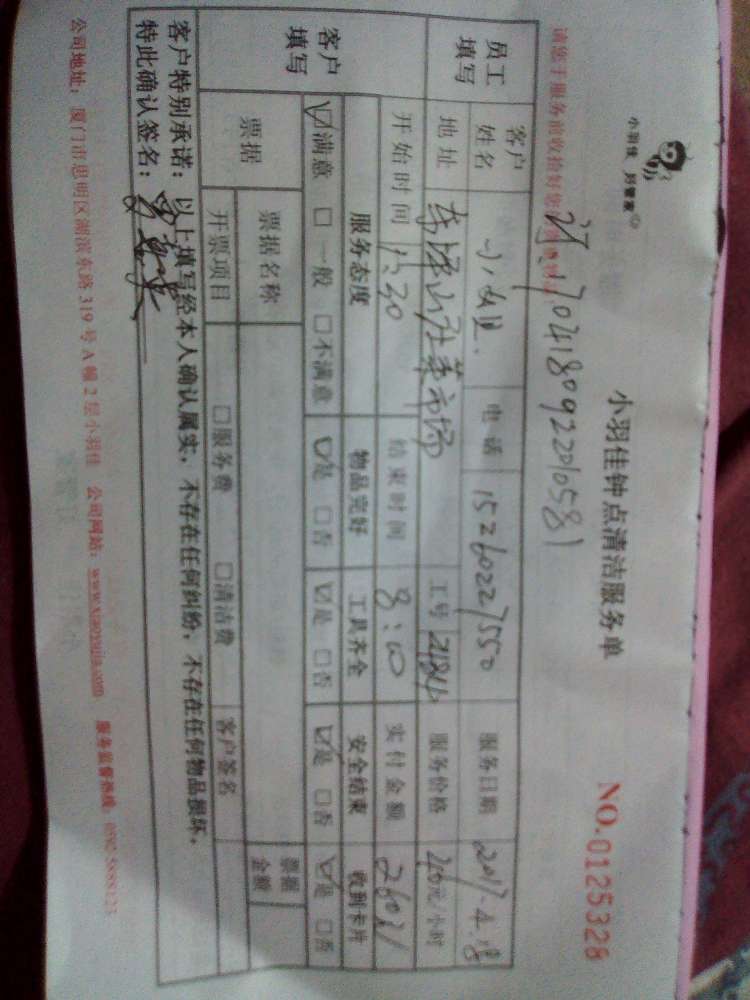 小羽佳 好管家
小羽佳钟点清洁服务单
NO.0125328
请您于服务前收拾好您
1704180922010581
员工填写 客户姓名 电话 15260227550 服务日期 2017.4.18
地址 工号 服务价格 元/小时
开始时间 1:30 结束时间 8:00 实付金额 260元
客户填写 服务态度 物品完好 工具齐全 安全结束 收到卡片
☑满意 □一般 □不满意 ☑是 □否 ☑是 □否 ☑是 □否 ☑是 □否
票据 票据名称 客户签名 票据金额
开票项目 □服务费 □清洁费
客户特别承诺：以上填写经本人确认属实，不存在任何纠纷，不存在任何物品损坏，
特此确认签名：
公司地址：厦门市思明区湖滨东路 319 号 A 幢 2 层小羽佳 公司网站：www.xiaoyujia.com 服务监督热线：0592 5888123